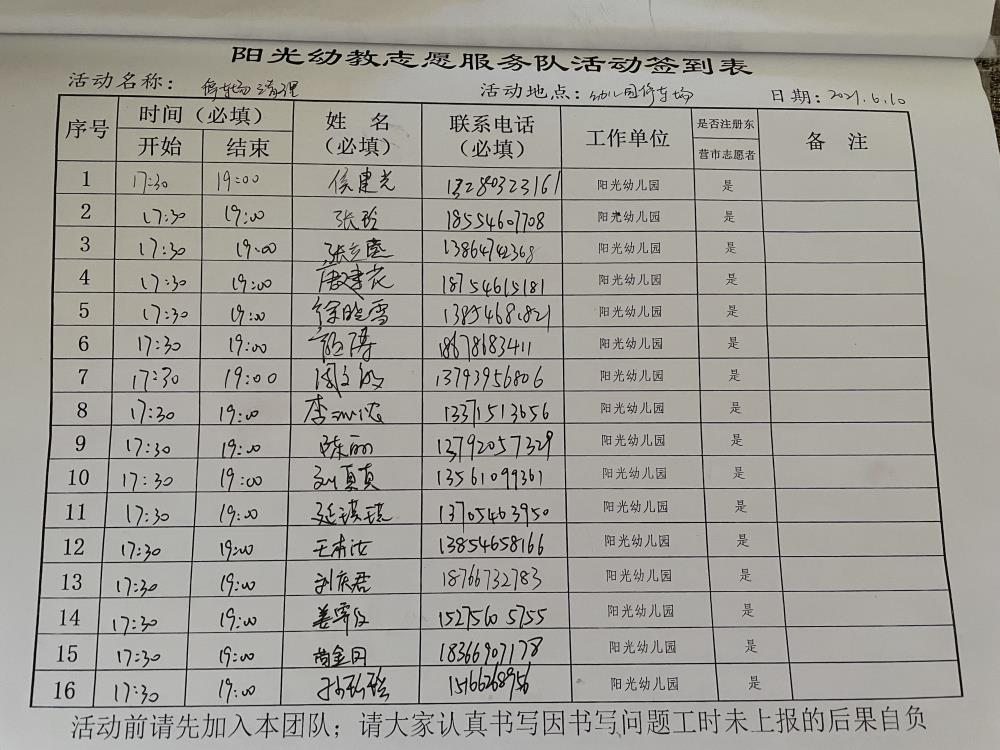 阳光幼教志愿服务队活动签到表
活动名称：停车场清理 活动地点：幼儿园停车场 日期：2021.6.10
序号 时间（必填） 姓名（必填） 联系电话（必填） 工作单位 是否注册东营市志愿者 备注
开始 结束
1 17:30 19:00 侯建光 13280323161 阳光幼儿园 是
2 17:30 19:00 张玲 18554607708 阳光幼儿园 是
3 17:30 19:00 13864742368 阳光幼儿园 是
4 17:30 19:00 唐建花 18754615181 阳光幼儿园 是
5 17:30 19:00 徐晓雪 13854681821 阳光幼儿园 是
6 17:30 19:00 18678683411 阳光幼儿园 是
7 17:30 19:00 13793956806 阳光幼儿园 是
8 17:30 19:00 13371513656 阳光幼儿园 是
9 17:30 19:00 陈丽 13792057329 阳光幼儿园 是
10 17:30 19:00 刘真真 13561099361 阳光幼儿园 是
11 17:30 19:00 13705463950 阳光幼儿园 是
12 17:30 19:00 13854658166 阳光幼儿园 是
13 17:30 19:00 刘庆君 18766732783 阳光幼儿园 是
14 17:30 19:00 15275605755 阳光幼儿园 是
15 17:30 19:00 18366907178 阳光幼儿园 是
16 17:30 19:00 阳光幼儿园 是
活动前请先加入本团队；请大家认真书写因书写问题工时未上报的后果自负